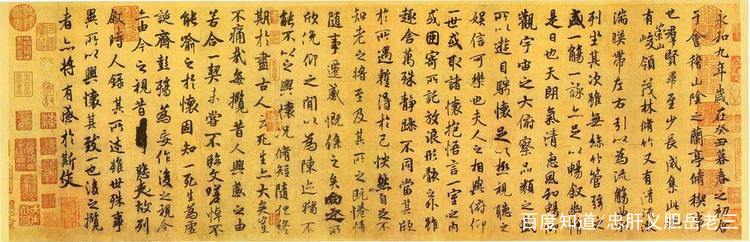 永和九年歲在癸丑暮春之初會
于會稽山陰之蘭亭脩禊
也羣賢畢至少長咸集此
有崇山峻領茂林脩竹又有清
湍暎帶左右引以為流觴
列坐其次雖無絲竹管弦
盛一觴一詠亦足以暢敘幽
是日也天朗氣清惠風和暢
觀宇宙之大俯察品類之
所以遊目騁懷足以極視聽之
娛信可樂也夫人之相與俯仰
一世或取諸懷抱悟言一室之內
或因寄所託放浪形骸之外雖
趣舍萬殊靜躁不同當其欣
於所遇蹔得於己快然自足不
知老之將至及其所之既惓情
隨事遷感慨係之矣向之所
欣俛仰之間以為陳迹猶不
能不以之興懷況脩短隨化終
期於盡古人云死生亦大矣豈
不痛哉每攬昔人興感之由
若合一契未嘗不臨文嗟悼不
能喻之於懷固知一死生為虛
誕齊彭殤為妄作後之視今
亦由今之視昔 悲夫故列
敘時人錄其所述雖世殊事
異所以興懷其致一也後之攬
者亦將有感於斯文
百度知道 忠肝义胆岳老三